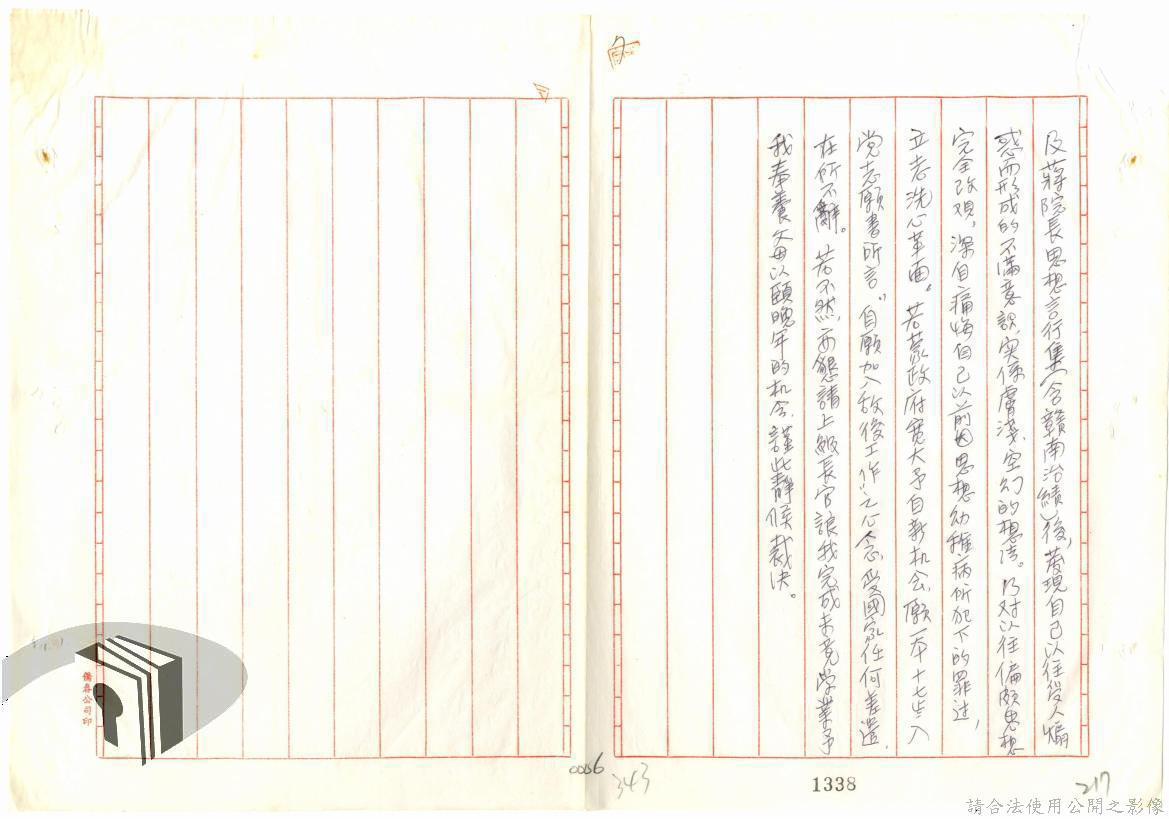 及蔣院長思想言行集(含贛南治績)後,發現自己以往受人煽
惑而形成的不滿意識,实係膚淺、空幻的想法。乃对以往偏頗思想
完全改观,深自痛悔自己以前因思想幼稚病所犯下的罪过,
立志洗心革面。若蒙政府寬大予自新机会,願一本十七岁入
党志願書所言"自願加入敌後工作"之心念,受國家任何差遣,
在所不辭。若不然,再懇請上級長官讓我完成未竟学業予
我奉養父母以頤晚年的机会,謹此靜候裁決。
儒森公司印
0056
343
1338
217
請合法使用公開之影像